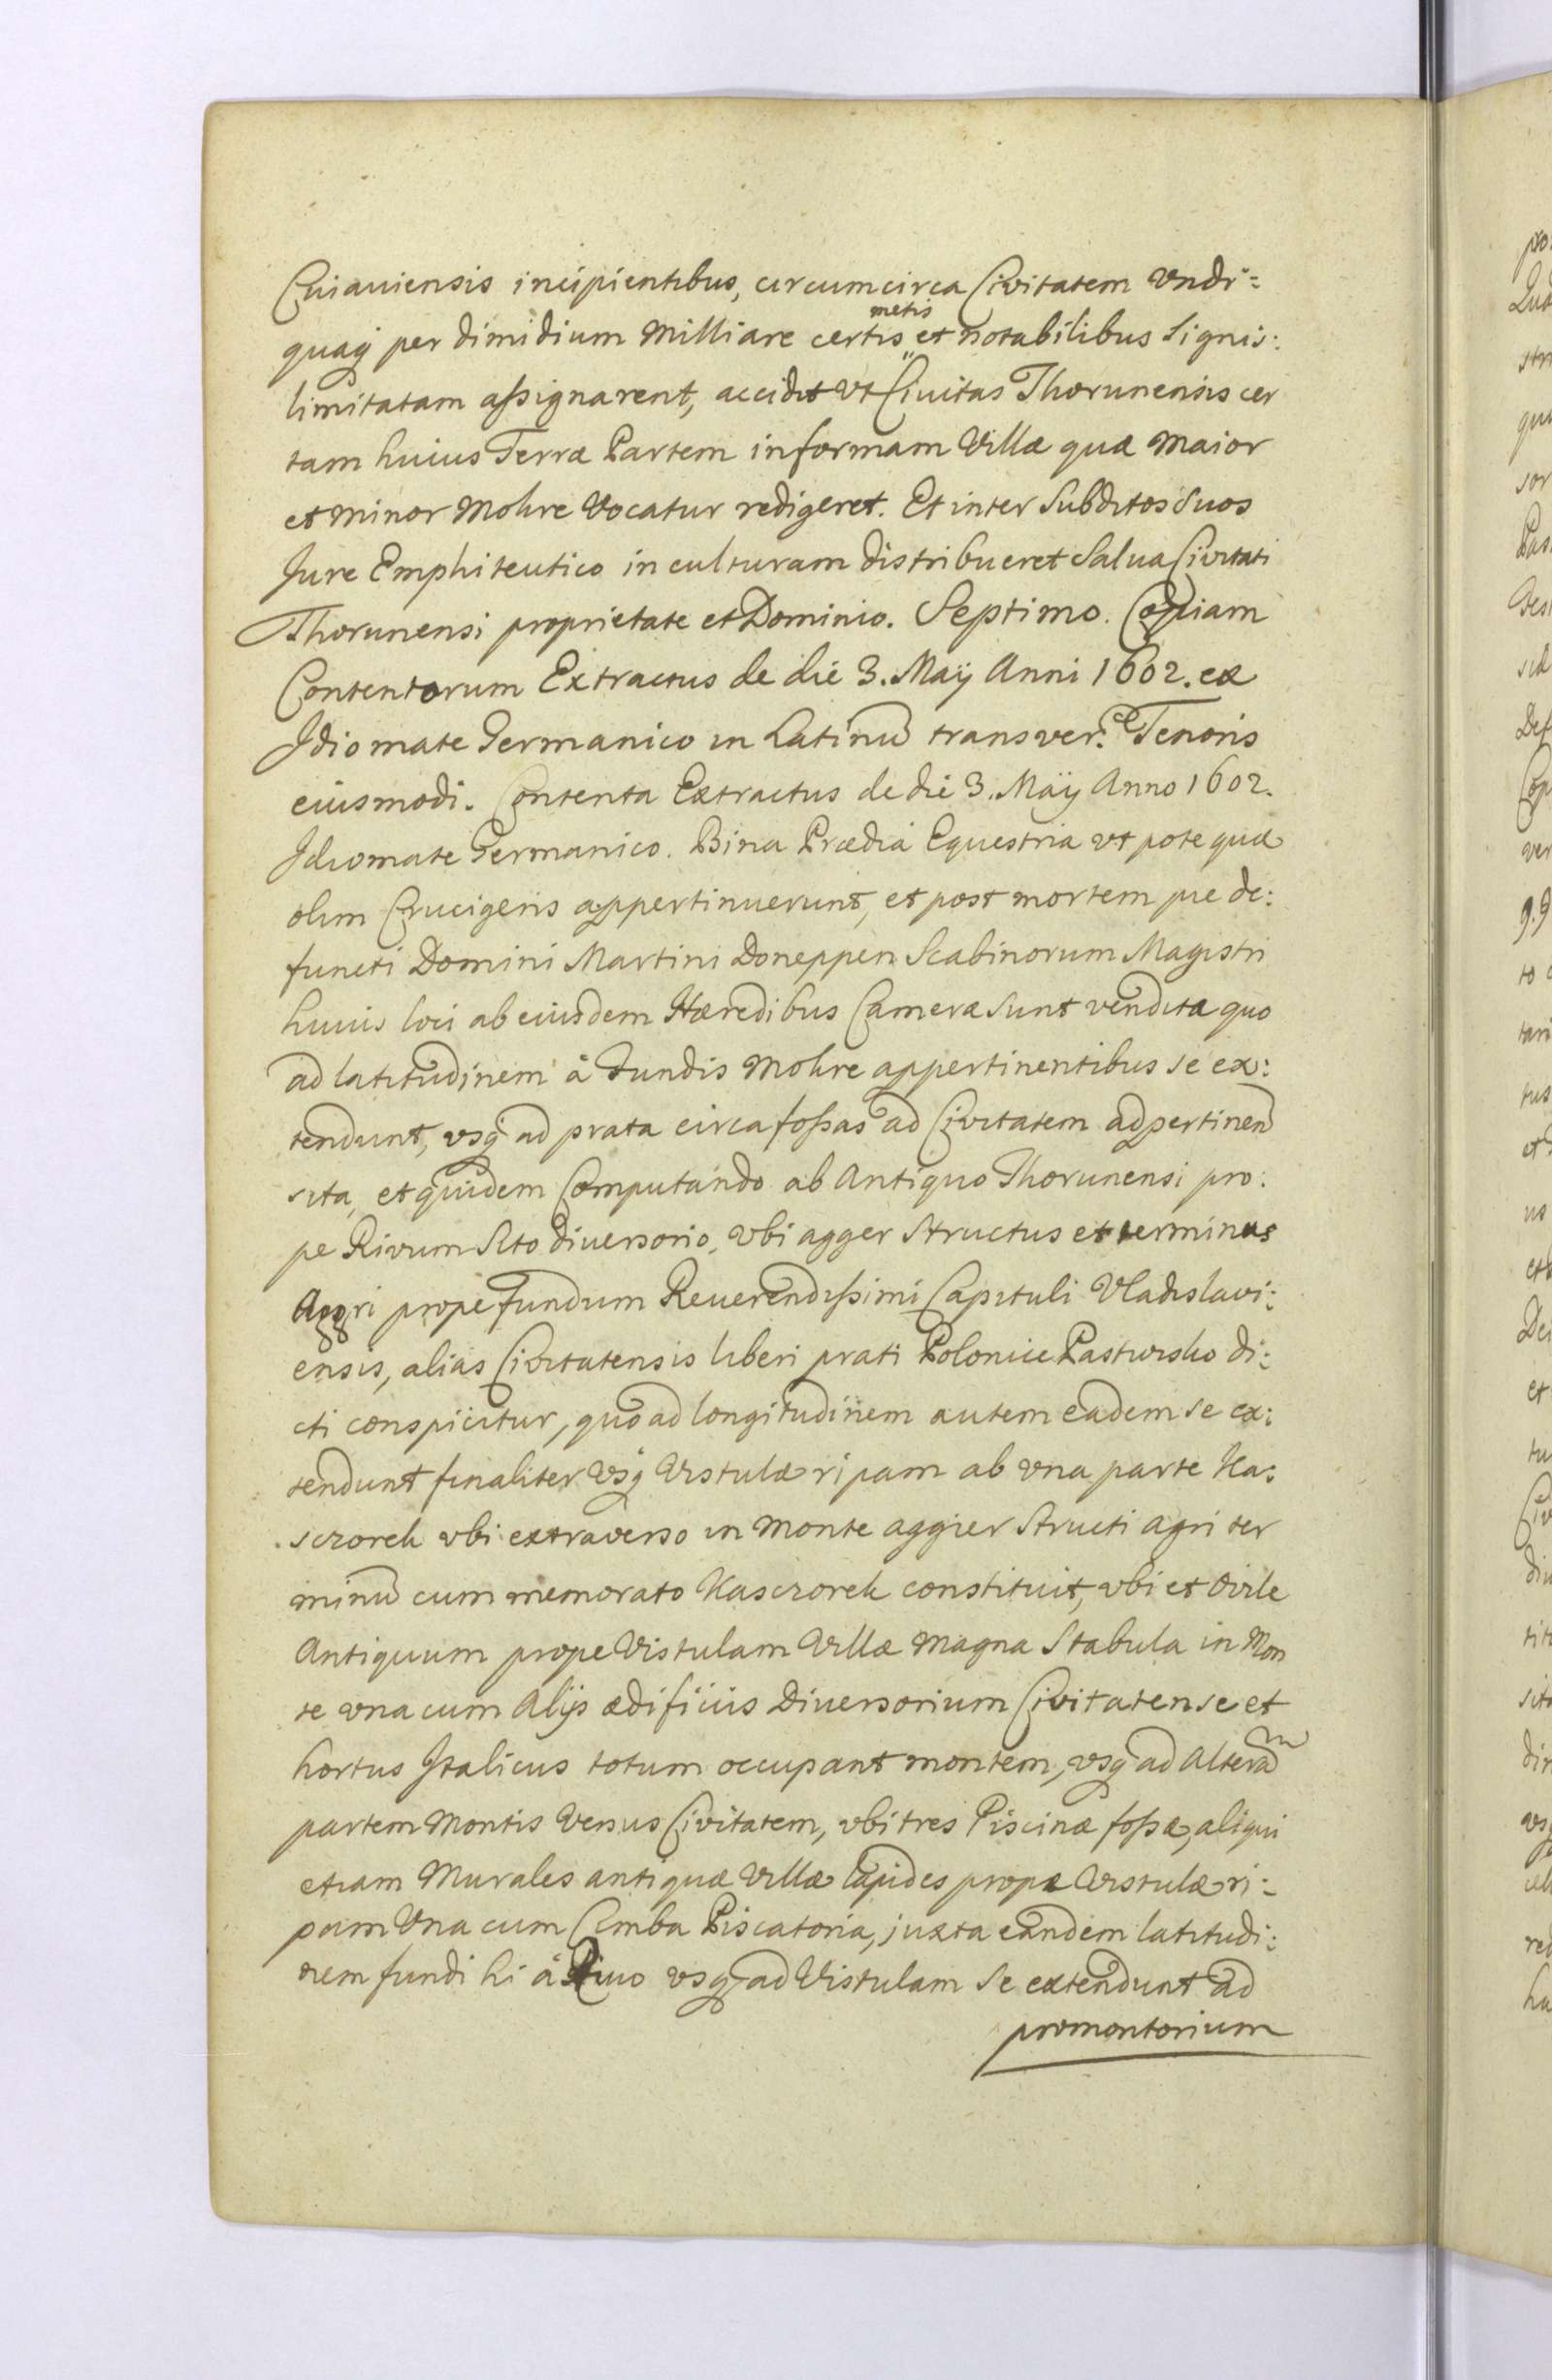 Cuiauiensis incipientibus, circumcirca Civitatem Vndi=
quaq per dimidium Milliare certis metis et notabilibus Signis:
limitatam assignarent, accidit vt Civitas Thorunensis cer
tam huius Terræ Partem in formam Villæ quæ Maior
et Minor Mohre Vocatur redigeret. Et inter Subditos Suos
Jure Emphiteutico in culturam distribueret Salua Civitati
Thorunensi proprietate et Dominio. Septimo. Copiam
Contentorum Extractus de die 3. Maÿ Anni 1602. ex
Idiomate Germanico in Latinu transver. Tenoris
eiusmodi. Contenta Extractus de die 3. Maÿ Anno 1602.
Idiomate Germanico. Bina Prædia Equestria vt pote quæ
olim Crucigeris appertinuerunt, et post mortem pie de:
functi Domini Martini Doneppen Scabinorum Magistri
huius loci ab eiusdem Hæredibus Cameræ Sunt venditæ quo
ad latitudinem à Fundis Mohre appertinentibus se ex:
tendunt, vsq ad prata circa fossas ad Civitatem adpertinen
sita, et quidem Computando ab Antiquo Thorunensi pro:
pe Rivum Sito diversorio, vbi agger Structus et terminus
Aggri prope fundum Reuerendissimi Capituli Vladislavi:
ensis, alias Civitatensis liberi prati Polonice Pastwisko di:
cti conspicitur, quo ad longitudinem autem eadem se ex:
tendunt finaliter Vsq Vistulæ ripam ab vna parte Ka:
sczorek vbi extraverso in Monte aggier Structi agri ter
minu cum memorato Kasczorek constituit, vbi et Ovile
Antiquum prope Vistulam Villæ Magna Stabula in Mon
te vna cum Alijs ædificiis Diversorium Civitatense et
hortus Italicus totum occupant montem, vsq ad Alteram
partem Montis Versus Civitatem, vbi tres Piscinæ fossæ, aliqui
etiam Murales antiquæ Villæ lapides prope Vistulæ ri:
pam Vna cum Cimba Piscatoria, juxta eandem latitudi:
nem fundi hi à Rivo vsq ad Vistulam Se extendunt ad
promontorium